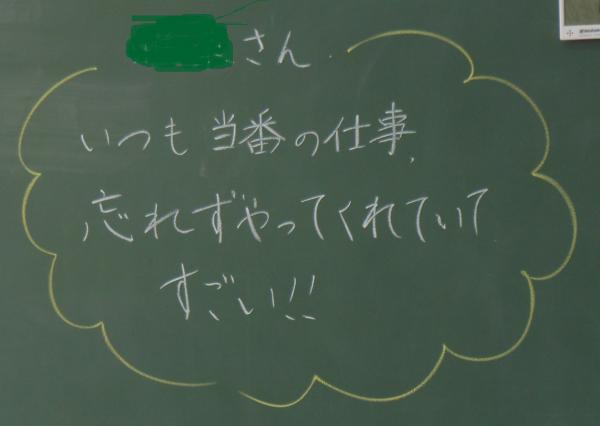 さん.
いつも当番の仕事,
忘れずやってくれていて
すごい!!